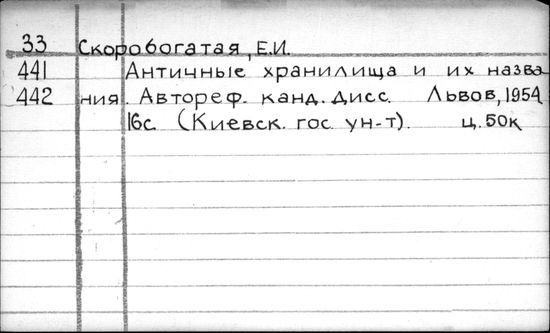 33 Скоробогатая, Е.И.
441 Античные хранилища и их назва
442 ния. Автореф. канд. дисс. Львов, 1954
16с. (Киевск. гос. ун-т). ц. 50к